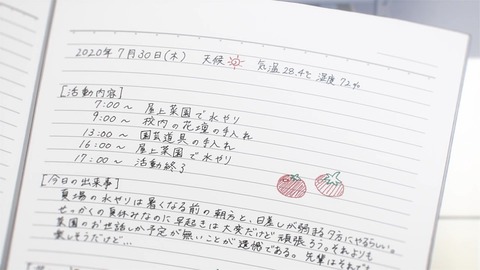 2020年7月30日(木) 天候 気温 28.4℃ 湿度 72%
[活動内容]
7:00〜 屋上菜園で水やり
9:00〜 校内の花壇の手入れ
13:00〜 園芸道具の手入れ
16:00〜 屋上菜園で水やり
17:00〜 活動終了
[今日の出来事]
夏場の水やりは暑くなる前の朝方と、日差しが弱まる夕方にやるらしい。
せっかくの夏休みなのに早起きは大変だけど頑張ろう。それよりも
菜園のお世話しか予定が無いことが遺憾である。先輩はそれでも
楽しそうだけど…